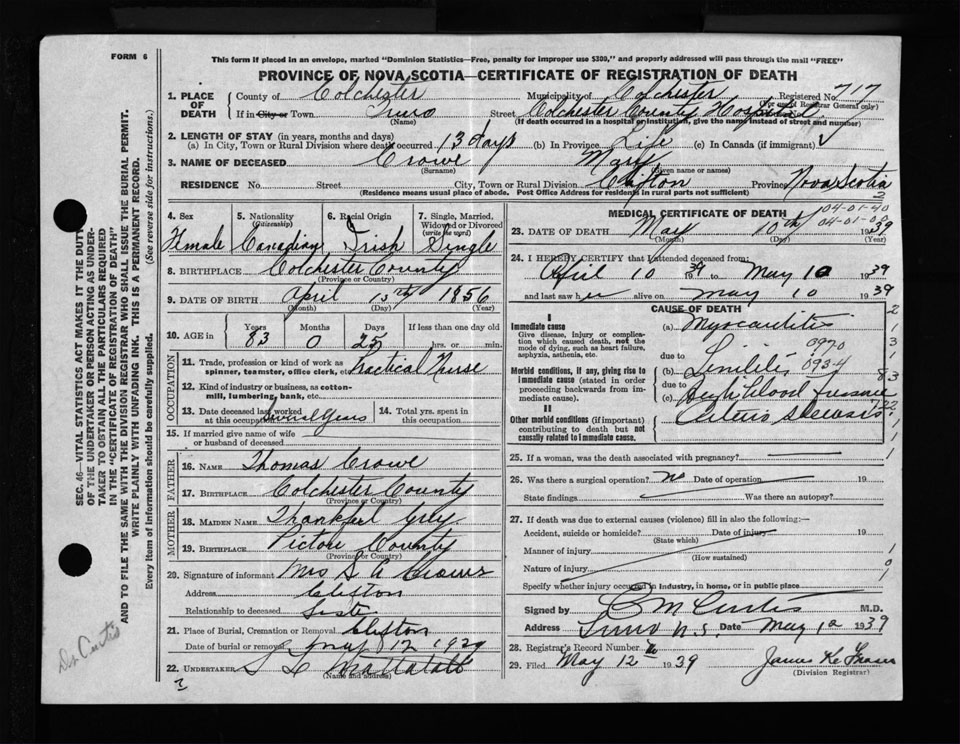 FORM 6
This form if placed in an envelope, marked "Dominion Statistics—Free, penalty for improper use $300," and properly addressed will pass through the mail "FREE"
PROVINCE OF NOVA SCOTIA—CERTIFICATE OF REGISTRATION OF DEATH
1. PLACE OF DEATH
County of Colchester Municipality of Colchester Registered No. 717
(For use of Registrar General only)
If in City or Town Truro Street Colchester County Hospital
(Name) (If death occurred in a hospital or institution, give the name instead of street and number)
2. LENGTH OF STAY (in years, months and days)
(a) In City, Town or Rural Division where death occurred 13 days (b) In Province Life (c) In Canada (if immigrant)
3. NAME OF DECEASED Crowe Mary
(Surname) (Given name or names)
RESIDENCE No. Street City, Town or Rural Division Clifton Province Nova Scotia
(Residence means usual place of abode. Post Office Address for residents in rural parts not sufficient)
4. Sex Female
5. Nationality (Citizenship) Canadian
6. Racial Origin Irish
7. Single, Married, Widowed or Divorced (write the word) Single
8. BIRTHPLACE Colchester County
(Province or Country)
9. DATE OF BIRTH April 15th 1856
(Month) (Day) (Year)
10. AGE in Years Months Days If less than one day old
83 0 25 hrs. or min.
OCCUPATION
11. Trade, profession or kind of work as spinner, teamster, office clerk, etc. Practical Nurse
12. Kind of industry or business, as cotton-mill, lumbering, bank, etc.
13. Date deceased last worked at this occupation Several Years
14. Total yrs. spent in this occupation
15. If married give name of wife or husband of deceased
FATHER
16. NAME Thomas Crowe
17. BIRTHPLACE Colchester County
(Province or Country)
MOTHER
18. MAIDEN NAME Thankful Grey
19. BIRTHPLACE Pictou County
(Province or Country)
20. Signature of informant Mrs
Address Clifton
Relationship to deceased Sister
21. Place of Burial, Cremation or Removal Clifton
Date of burial or removal May 12 1939
22. UNDERTAKER
(Name and address)
3
MEDICAL CERTIFICATE OF DEATH
04-01-40
23. DATE OF DEATH May 10th 1939
(Month) (Day) (Year)
24. I HEREBY CERTIFY that I attended deceased from:
April 10 39 to May 10 1939
and last saw her alive on May 10 1939
CAUSE OF DEATH
I
Immediate cause
Give disease, injury or complication which caused death, not the mode of dying, such as heart failure, asphyxia, asthenia, etc.
(a) Myocarditis
0970
due to
Morbid conditions, if any, giving rise to immediate cause (stated in order proceeding backwards from immediate cause).
(b) Senility 0934
due to
(c) High Blood Pressure
II
Other morbid conditions (if important) contributing to death but not causally related to immediate cause.
Arterio Sclerosis
25. If a woman, was the death associated with pregnancy?
26. Was there a surgical operation? No Date of operation 19
State findings Was there an autopsy?
27. If death was due to external causes (violence) fill in also the following:—
Accident, suicide or homicide? Date of injury 19
(State which)
Manner of injury
(How sustained)
Nature of injury
Specify whether injury occurred in industry, in home, or in public place
Signed by C M Curtis M.D.
Address Truro N.S. Date May 12 1939
28. Registrar's Record Number
29. Filed May 12 1939
(Division Registrar)
SEC. 46—VITAL STATISTICS ACT MAKES IT THE DUTY OF THE UNDERTAKER OR PERSON ACTING AS UNDERTAKER TO OBTAIN ALL THE PARTICULARS REQUIRED IN THE "CERTIFICATE OF REGISTRATION OF DEATH" AND TO FILE THE SAME WITH THE DIVISION REGISTRAR WHO SHALL ISSUE THE BURIAL PERMIT.
WRITE PLAINLY WITH UNFADING INK. THIS IS A PERMANENT RECORD.
Every item of information should be carefully supplied. (See reverse side for instructions.)
Dr Curtis